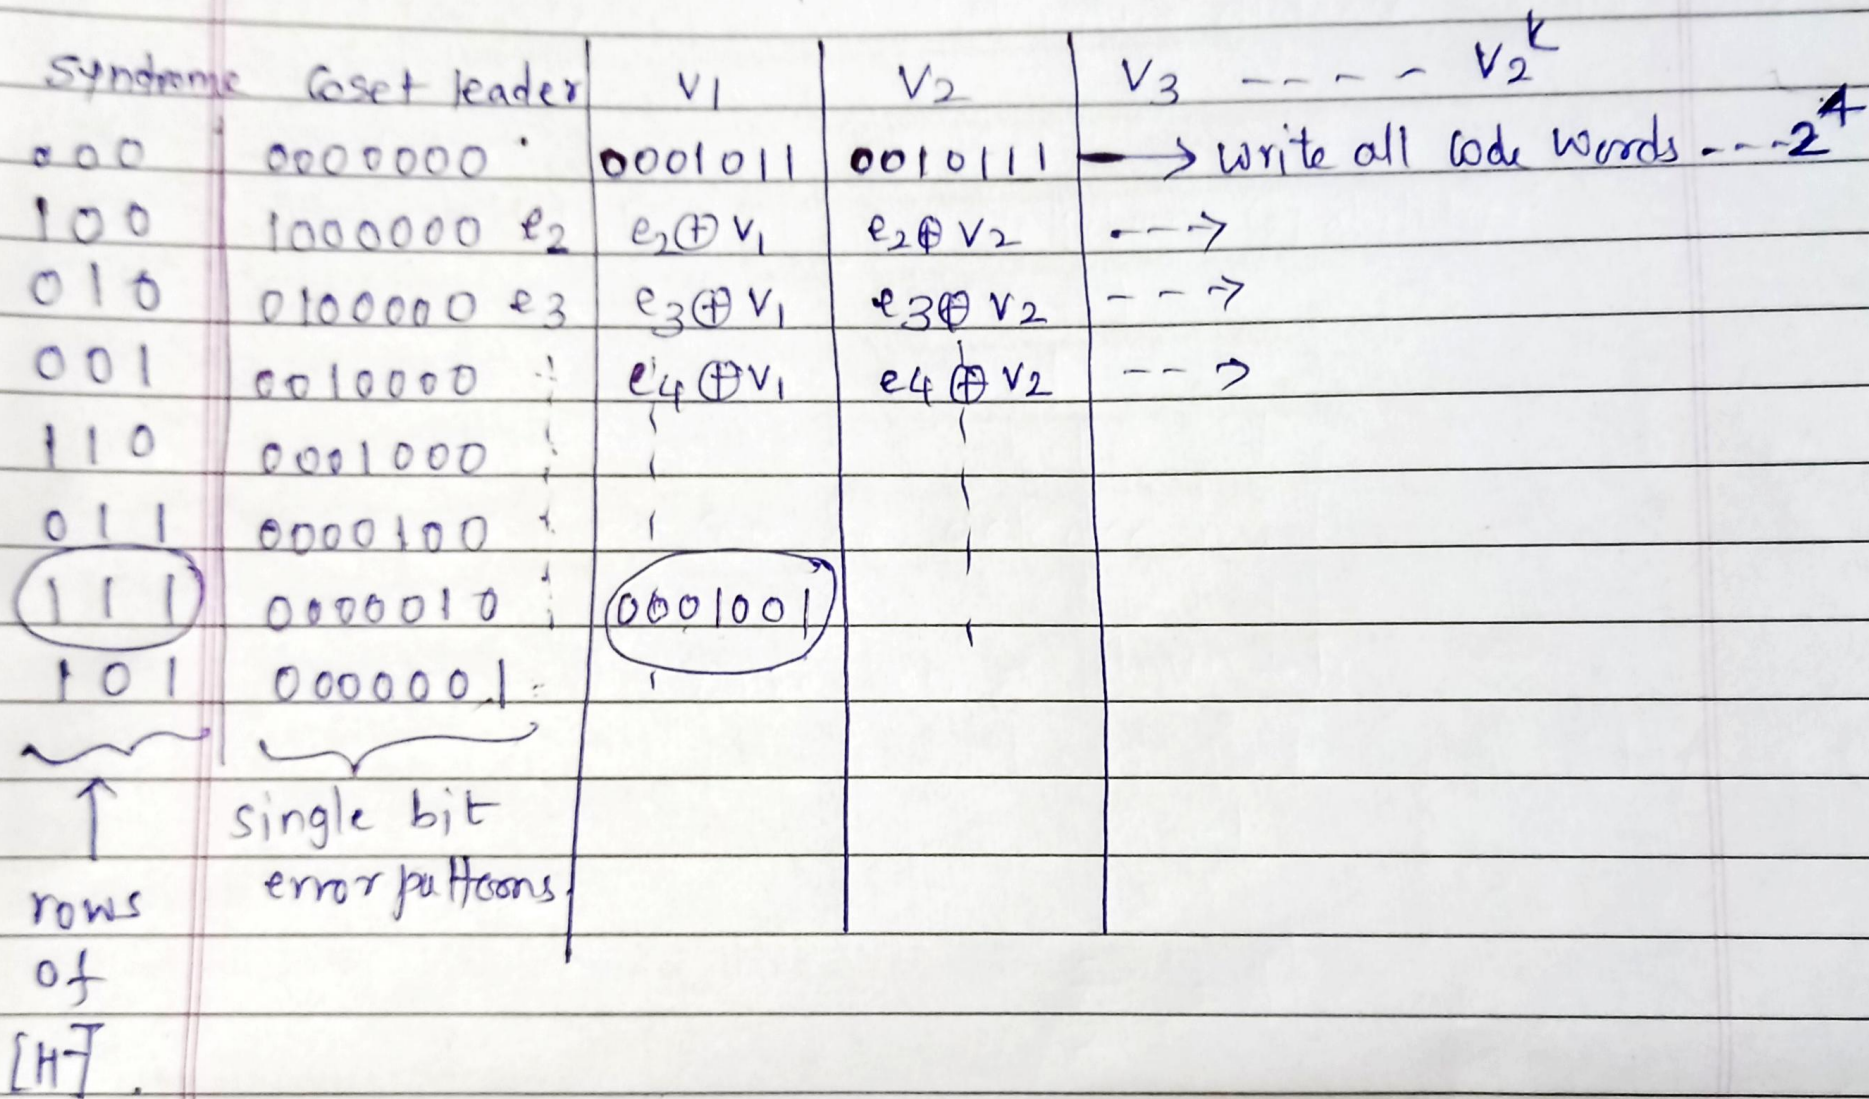 Syndrome Coset leader V1 V2 V3 ----- V2^k
000 0000000 0001011 0010111 → write all code words ---- 2^4
100 1000000 e2 e2⊕V1 e2⊕V2 ---→
010 0100000 e3 e3⊕V1 e3⊕V2 ---→
001 0010000 e4⊕V1 e4⊕V2 ---→
110 0001000
011 0000100
111 0000010 0001001
101 0000001
↑ single bit
rows error patterns
of
[H^T].